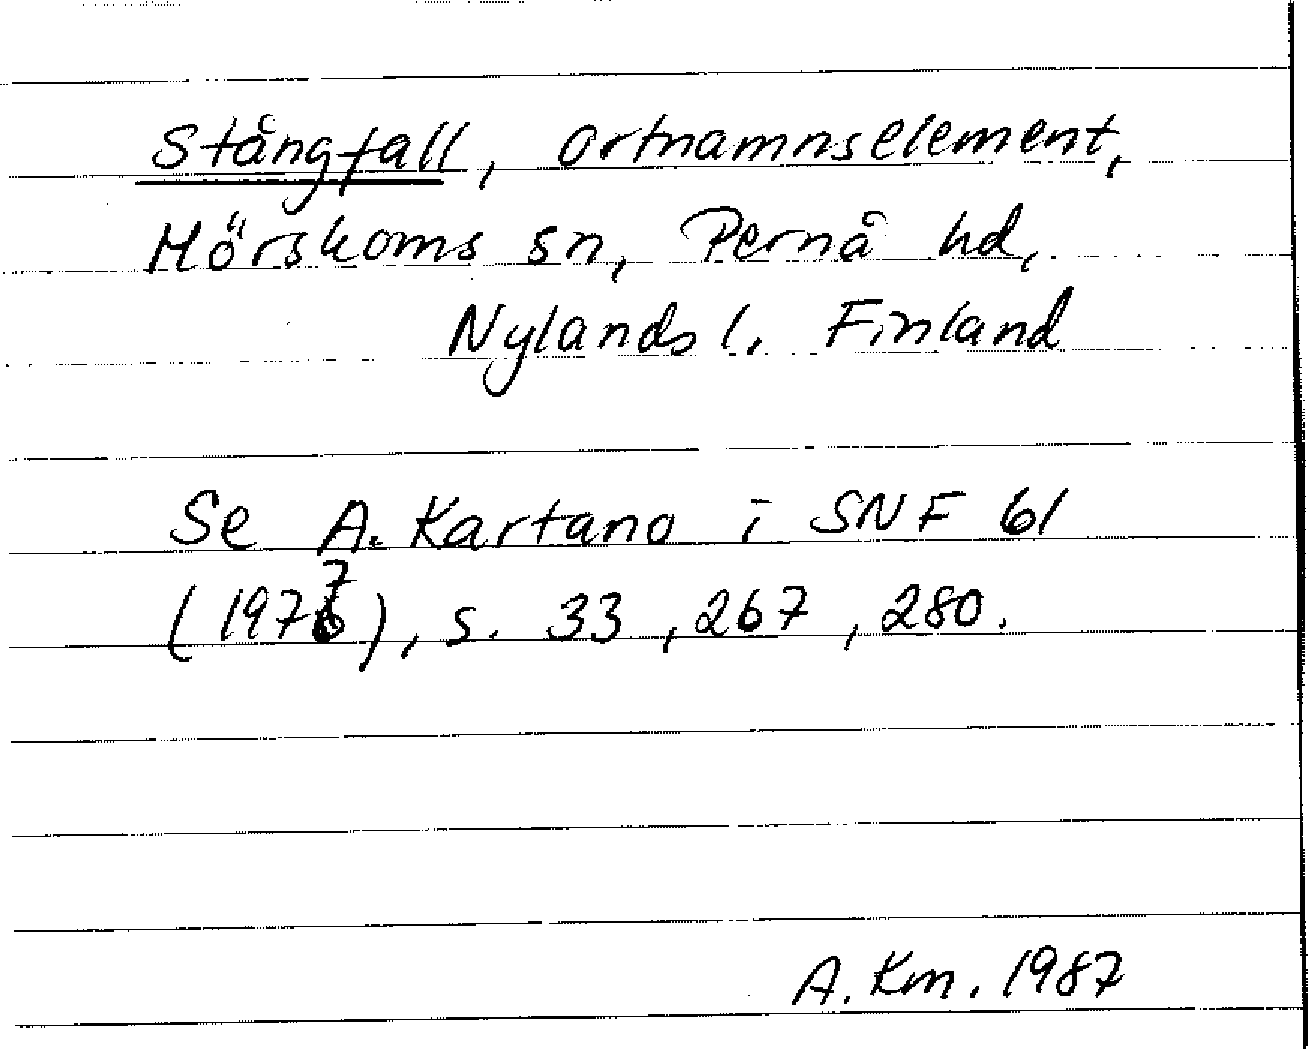 Stångfall, ortnamnselement,
Mörskoms sn, Pernå hd,
Nylands l. Finland
Se A. Kartano i SNF 61
(1977), s. 33, 267, 280.
A. Km. 1987